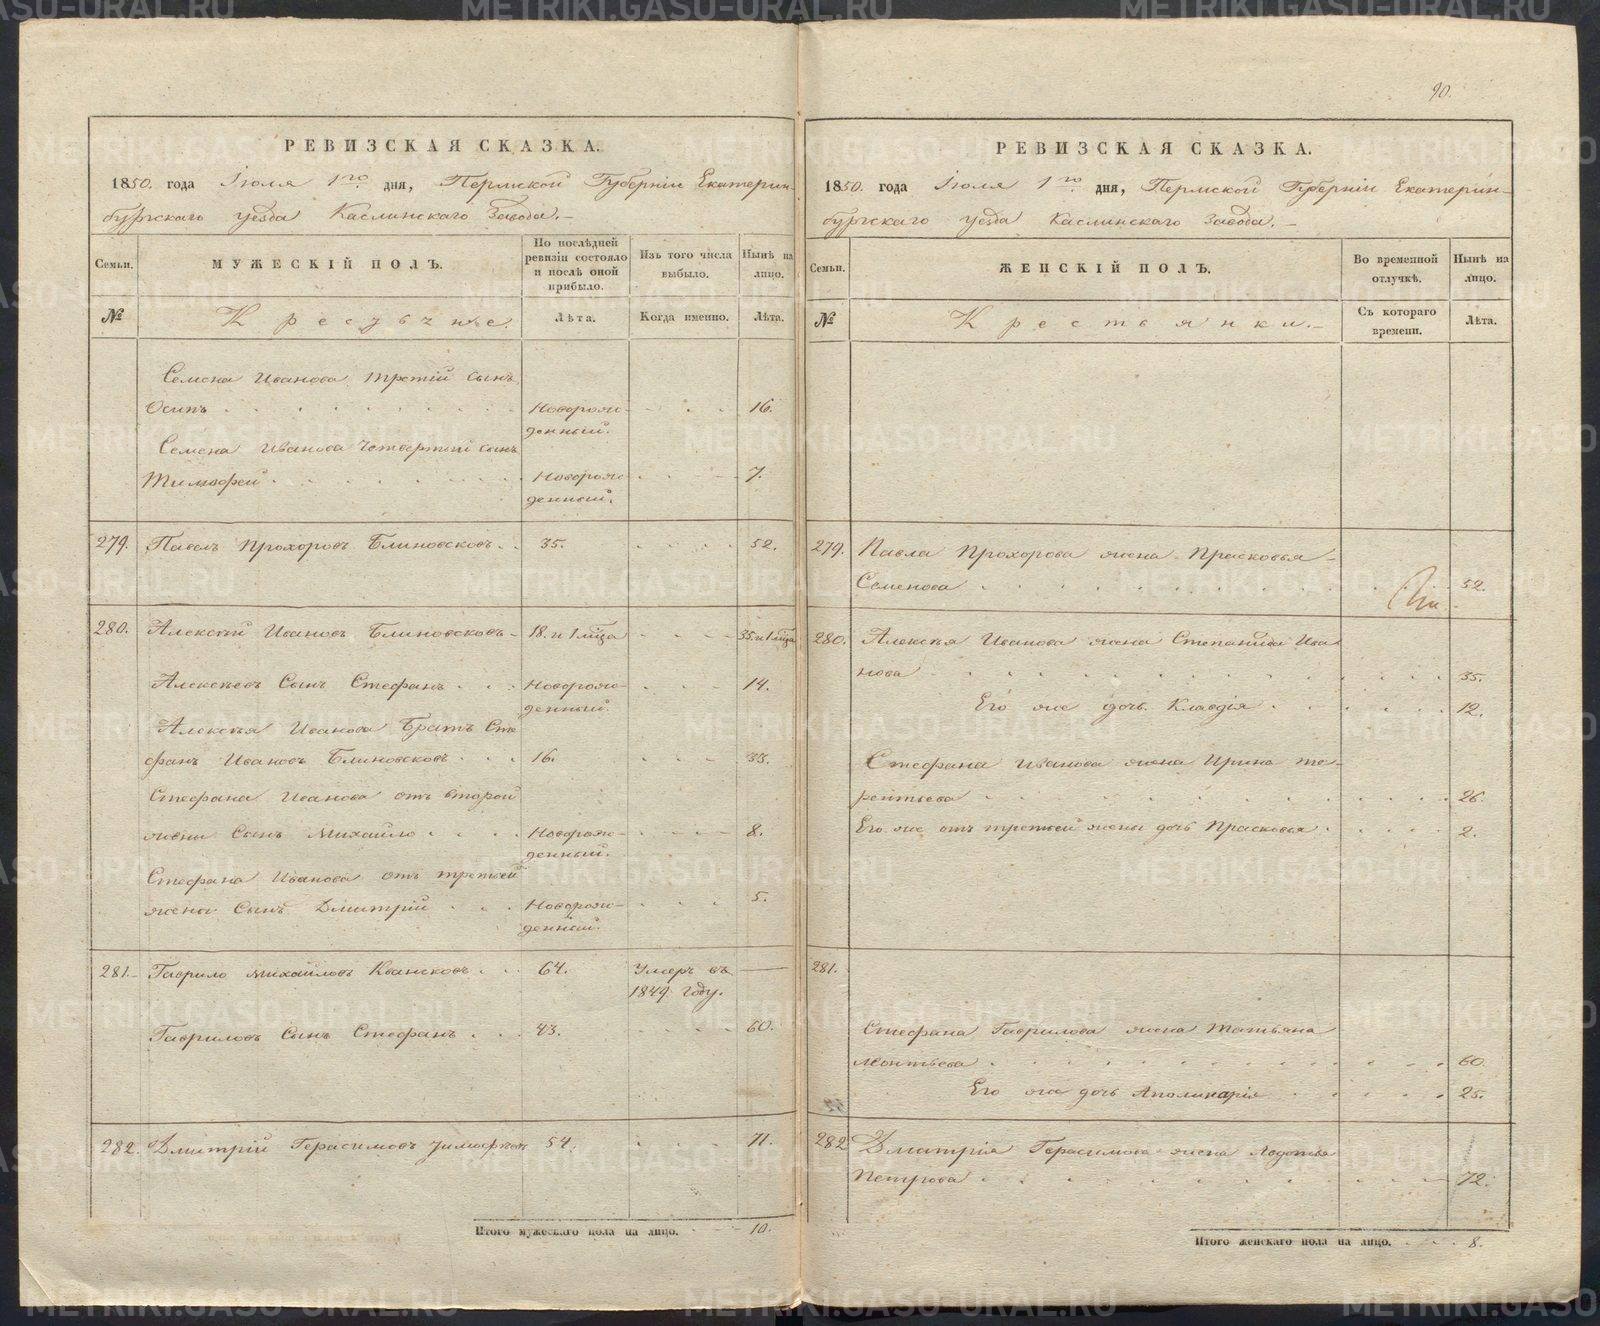 90.
РЕВИЗСКАЯ СКАЗКА.
1850. года Іюля 1го дня, Пермской Губерніи Екатерин-
бургскаго уезда Каслинскаго Завода.-
Семьи.
МУЖЕСКІЙ ПОЛЪ.
По послѣдней ревизіи состояло и послѣ оной прибыло.
Изъ того числа выбыло.
Нынѣ на лицо.
№
Крестьяне.
Лѣта.
Когда именно.
Лѣта.
Семена Иванова третій сынъ
Осипъ Новорож- 16.
денный.
Семена Иванова Четвертый сынъ
Тимофей Новорож- 7.
денный.
279. Павелъ Прохоровъ Блиновсковъ 35. 52.
280. Алексѣй Ивановъ Блиновсковъ 18. и 1 мѣца 35 и 1 мѣца
Алексѣевъ Сынъ Стефанъ Новорож- 14.
денный.
Алексѣя Иванова Братъ Сте
фанъ Ивановъ Блиновсковъ 16. 33.
Стефана Иванова отъ второй
жены Сынъ Михайло Новорож- 8.
денный.
Стефана Иванова отъ третьей
жены Сынъ Дмитрій Новорож- 5.
денный.
281. Гаврило Михайловъ 64. Умеръ въ
1849 году.
Гавриловъ Сынъ Стефанъ 43. 60.
282. Дмитрій Герасимовъ 54. 71.
Итого мужескаго пола на лицо. 10.
РЕВИЗСКАЯ СКАЗКА.
1850. года Іюля 1го дня, Пермской Губерніи Екатерин-
бургскаго уезда Каслинскаго Завода.-
Семьи.
ЖЕНСКІЙ ПОЛЪ.
Во временной отлучкѣ.
Нынѣ на лицо.
№
Крестьянки.-
Съ котораго времени.
Лѣта.
279. Павла Прохорова жена Прасковья
Семенова 52.
280. Алексѣя Иванова жена Степанида Ива
нова 35.
Его же дочь Клавдія 12.
Стефана Иванова жена Ирина те-
рентьева 26.
Его же отъ третьей жены дочь Прасковья 2.
281.
Стефана Гаврилова жена Татьяна
Леонтьева 60.
Его же дочь Аполинарія 25.
282 Дмитрія Герасимова жена
Петрова 72.
Итого женскаго пола на лицо. 8.
METRIKI.GASO-URAL.RU